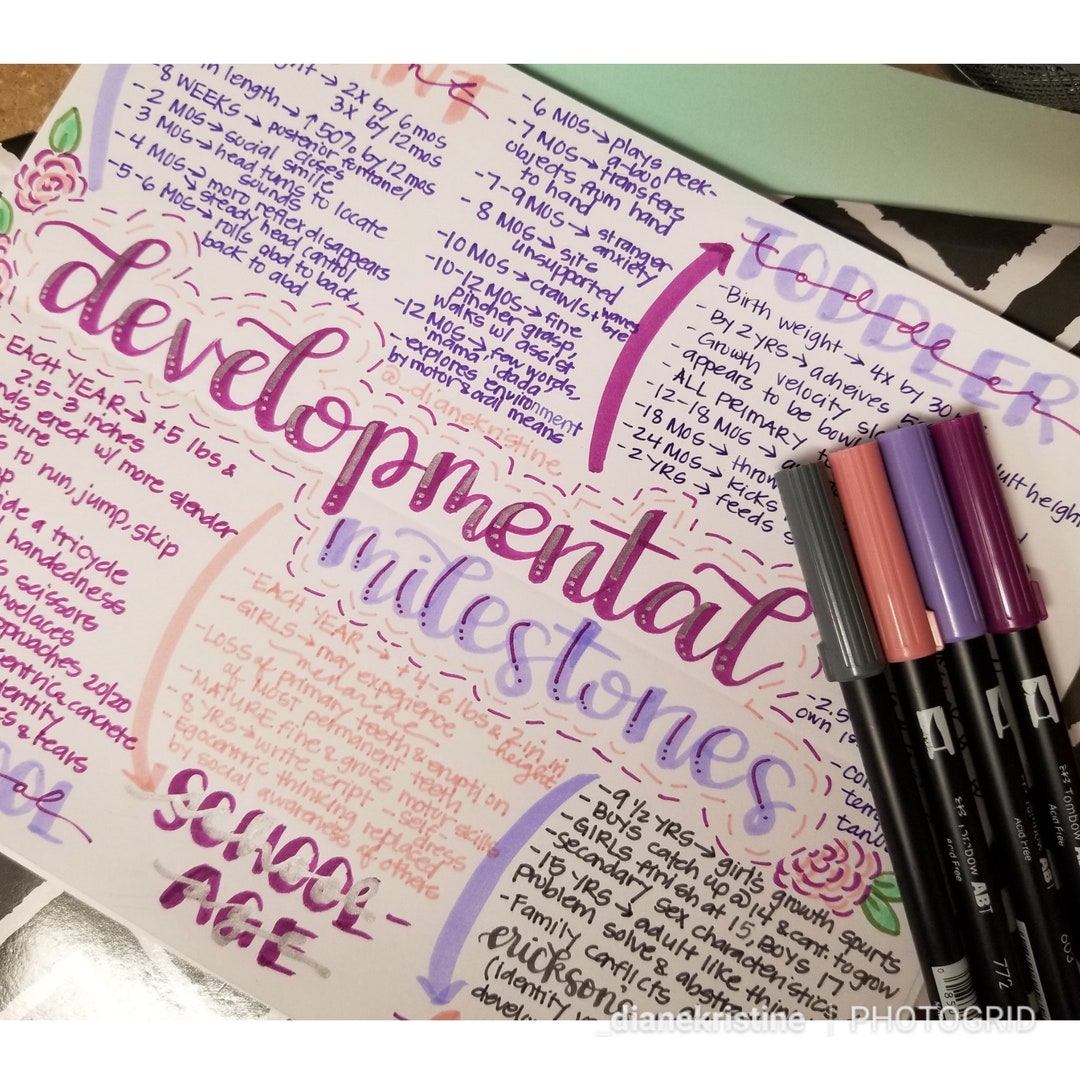 → 2X by 6 mos
3X by 12 mos
in length → ↑ 50% by 12 mos
- 8 WEEKS → posterior fontanel
closes
- 2 MOS → social smile
- 3 MOS → head turns to locate
sounds
- 4 MOS → moro reflex disappears
↘ steady head control
- 5-6 MOS → rolls abd to back,
back to abd
- 6 MOS → plays peek-
a-boo
- 7 MOS → transfers
objects from hand
to hand
- 7-9 MOS → stranger
anxiety
- 8 MOS → sits
unsupported
- 10 MOS → crawls + waves
bye
- 10-12 MOS → fine
pincher grasp,
walks w/ assist
- 12 MOS → few words,
'mama, dada'
- explores environment
by motor & oral means
@_dianekristine_
TODDLER
toddler
- Birth weight → 4X by 30
- By 2 YRS → acheives 5
adult height
- Growth velocity
- appears to be
- ALL PRIMARY
- 12-18 MOS →
- 18 MOS → throw
- 24 MOS → kicks
- 2 YRS → feeds
developmental
milestones
- EACH YEAR → +5 lbs &
2.5-3 inches
erect w/ more slender
to run, jump, skip
a tricycle
handedness
scissors
20/20
concrete
& fears
- EACH YEAR → + 4-6 lbs & 2 in. in
height
- GIRLS → may experience
menarche
- LOSS of primary teeth & eruption
of MOST permanent teeth
- MATURE fine & gross motor skills
- 8 YRS → write script
- Egocentric thinking replaced
by social awareness of self &
others
SCHOOL-
AGE
- 9 1/2 YRS → girls growth spurts
- BOYS catch up @ 14 & cont. to grow
- GIRLS finish at 15, BOYS 17
- secondary sex characteristics
- 15 YRS → adult like thinking
problem solve & abstract
- Family conflicts
ericksons
(Identity
- 2.5
own
ABT
772
Tombow
Acid Free
Tombow
Acid Free
_dianekristine | PHOTOGRID